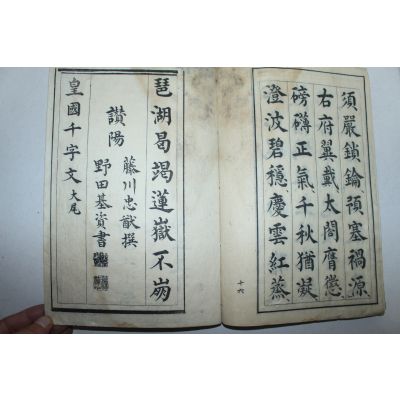 須嚴鎖鑰預塞禍源
右府翼戴太閤膺懲
磅礴正氣千秋猶凝
澄波碧穩慶雲紅蒸
十六
琶湖曷竭蓮嶽不崩
讚陽 藤川忠猷撰
野田基資書
皇國千字文大尾